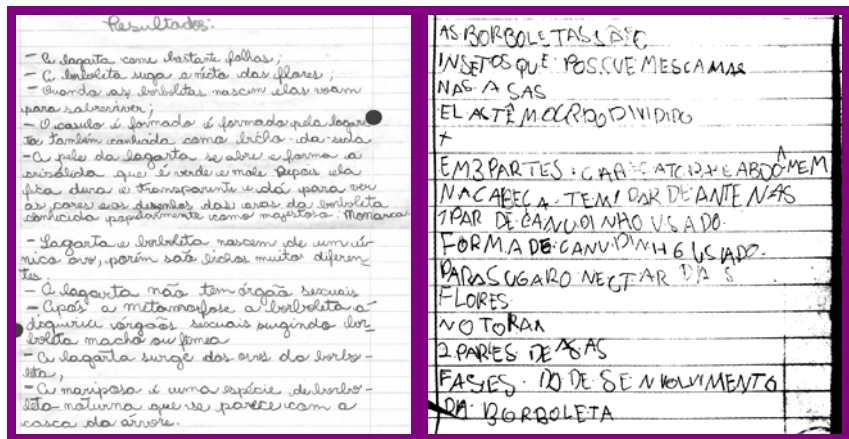 Resultados:
- A lagarta come bastante folhas;
- A borboleta suga o nécta das flores;
- Quando as borboletas nascem elas voam
para sobreviver;
- O casulo é formado é formado pela lagar
ta também conhecida como bicho-da-seda
- A pele da lagarta se abre e forma a
crisálida que é verde e mole. Depois ela
fica dura e transparente e dá para ver
as cores e os desenhos das asas da borboleta
conhecida popularmente como majestosa: Monarca
- Lagarta e borboleta nascem de um ú-
nico ovo, porém são bichos muitos diferen-
tes.
- A lagarta não tem órgão sexuais
- Após a metamorfose a borboleta a-
diquirir órgãos sexuais surgindo bor-
boleta macho ou fêmea
- A lagarta surge dos ovos da borbo-
leta,
- A mariposa é uma espécie de borbo-
leta noturna que se parece com a
casca da árvore.
AS BORBOLETAS SÃO
INSETOS QUE POSCUEM ESCAMAS
NAS ASAS
ELAS TÊM O CORPO DIVIDIDO
+
EM 3 PARTES: E ABDÔMEM
NA CABEÇA TEM 1 PAR DE ANTENAS
1 PAR DE CANUDINHO USADO.
FORMA DE CANUDINHO USADO.
PARA SUGAR O NECTAR DAS
FLORES
NO TORAX
2 PARES DE ASAS
FASES DO DESENVOLVIMENTO
DA BORBOLETA